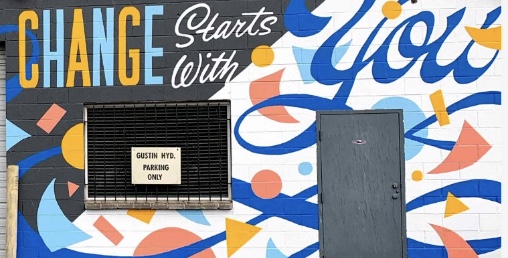 CHANGE Starts
With
You
GUSTIN HYD.
PARKING
ONLY